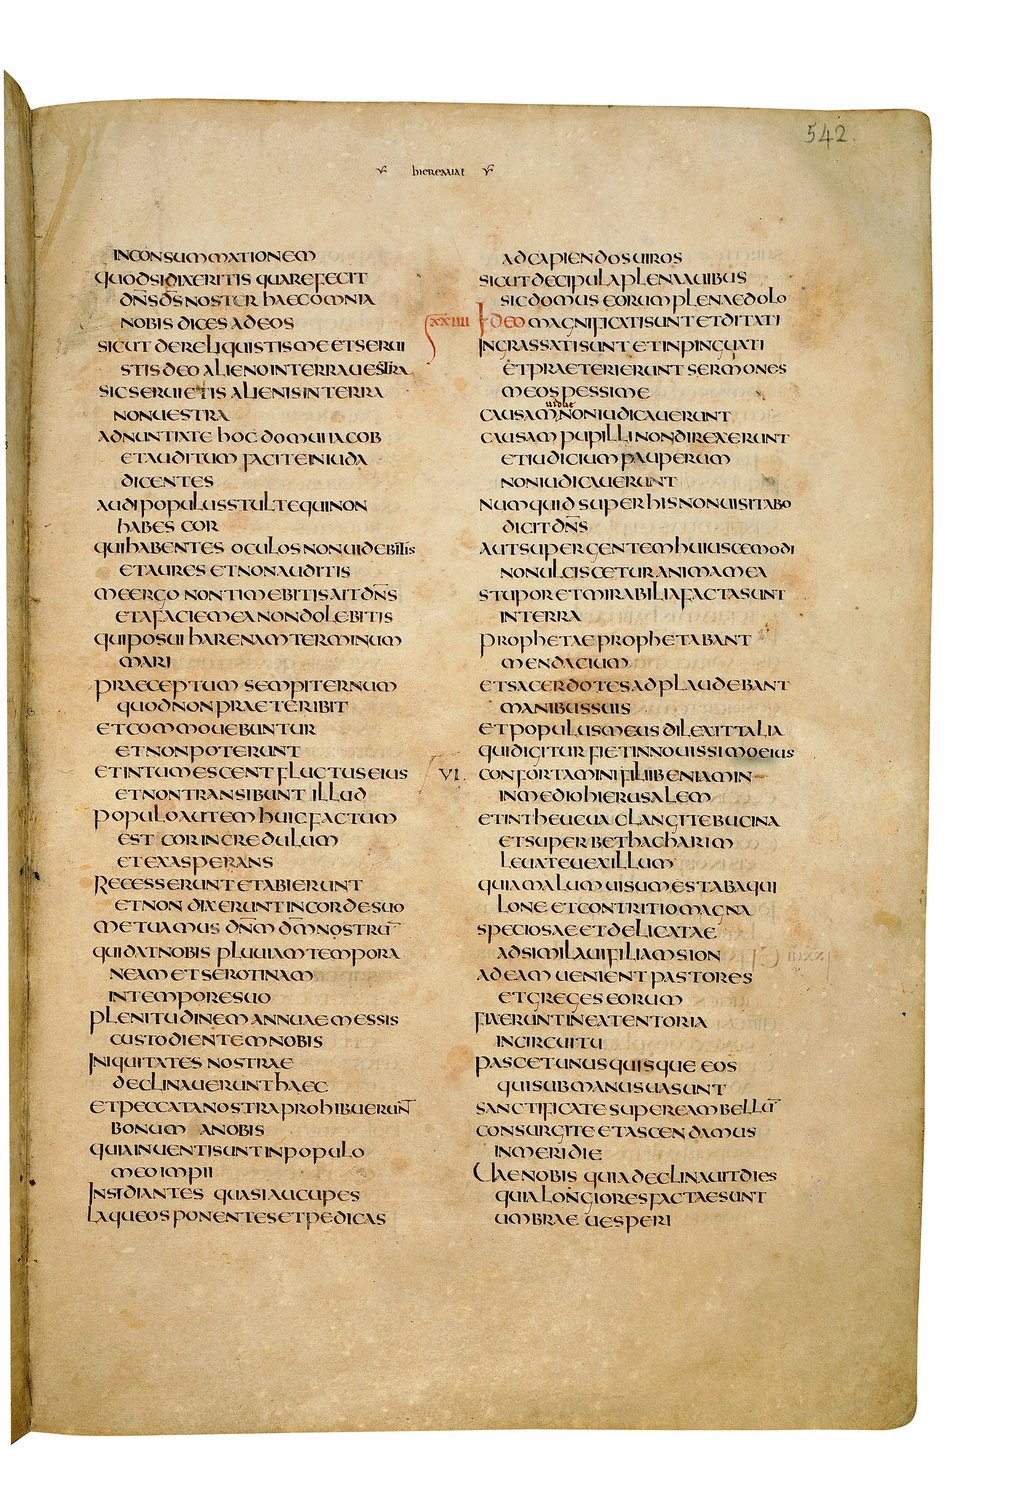 542
hieremiae
INCONSUMMATIONEM
QUODSIDIXERITIS QUAREFECIT
DN̅S D̅S NOSTER HAECOMNIA
NOBIS DICES ADEOS
SICUT DERELIQUISTISMEETSERUI
STIS DEO ALIENOINTERRAUESTRA
SICSERUIETIS ALIENISINTERRA
NONUESTRA
ADNUNTIATE HOC DOMUI IACOB
ETAUDITUM FACITEINIUDA
DICENTES
AUDIPOPULUSSTULTEQUINON
HABES COR
QUIHABENTES OCULOSNONUIDEBITIS
ETAURES ETNONAUDITIS
MEERGO NONTIMEBITISAITDN̅S
ETAFACIEMEANONDOLEBITIS
QUIPOSUI HARENAMTERMINUM
MARI
PRAECEPTUM SEMPITERNUM
QUODNONPRAETERIBIT
ETCOMMOUEBUNTUR
ETNONPOTERUNT
ETINTUMESCENTFLUCTUSEIUS
ETNONTRANSIBUNT ILLUD
POPULOAUTEM HUICFACTUM
EST CORINCREDULUM
ETEXASPERANS
RECESSERUNTETABIERUNT
ETNON DIXERUNTINCORDESUO
METUAMUS DN̅M D̅M NOSTRU̅
QUIDATNOBIS PLUUIAMTEMPORA
NEAMETSEROTINAM
INTEMPORESUO
PLENITUDINEMANNUAEMESSIS
CUSTODIENTEMNOBIS
INIQUITATES NOSTRAE
DECLINAUERUNTHAEC
ETPECCATANOSTRAPROHIBUERUNT
BONUM ANOBIS
QUIAINUENTISUNTINPOPULO
MEOIMPII
INSIDIANTES QUASIAUCUPES
LAQUEOSPONENTESETPEDICAS
ADCAPIENDOSUIROS
SICUTDECIPULAPLENAAUIBUS
SICDOMUS EORUMPLENAEDOLO
XXIIII IDEOMAGNIFICATISUNTETDITATI
INGRASSATISUNT ETINPINGUATI
ETPRAETERIERUNT SERMONES
MEOSPESSIME
uiduae
CAUSAM NONIUDICAUERUNT
CAUSAM PUPILLINONDIREXERUNT
ETIUDICIUMPAUPERUM
NONIUDICAUERUNT
NUMQUIDSUPERHISNONUISITABO
DICITDN̅S
AUTSUPERGENTEMHUIUSCEMODI
NONULCISCETURANIMAMEA
STUPORETMIRABILIAFACTASUNT
INTERRA
PROPHETAEPROPHETABANT
MENDACIUM
ETSACERDOTESADPLAUDEBANT
MANIBUSSUIS
ETPOPULUSMEUSDILEXITTALIA
QUIDIGITUR FIETINNOUISSIMOEIUS
VI. CONFORTAMINIFILIIBENIAMIN
INMEDIOHIERUSALEM
ETINTHECUA CLANGITEBUCINA
ETSUPERBETHACHARIM
LEUATEUEXILLUM
QUIAMALUMUISUMESTABAQUI
LONE ETCONTRITIOMAGNA
SPECIOSAEETDELICATAE
ADSIMILAUIFILIAMSION
ADEAM UENIENT PASTORES
ETGREGESEORUM
FIXERUNTINEATENTORIA
INCIRCUITU
PASCETUNUSQUISQUE EOS
QUISUBMANUSUASUNT
SANCTIFICATESUPEREAMBELLU̅
CONSURGITEETASCENDAMUS
INMERIDIE
UAENOBIS QUIADECLINAUITDIES
QUIALONGIORESFACTAESUNT
UMBRAE UESPERI